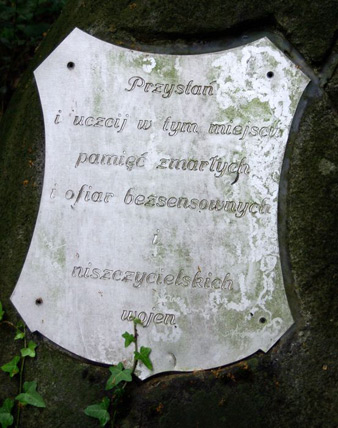 Przystań
i uczcij w tym miejscu
pamięć zmarłych
i ofiar bezsensownych
i
niszczycielskich
wojen.